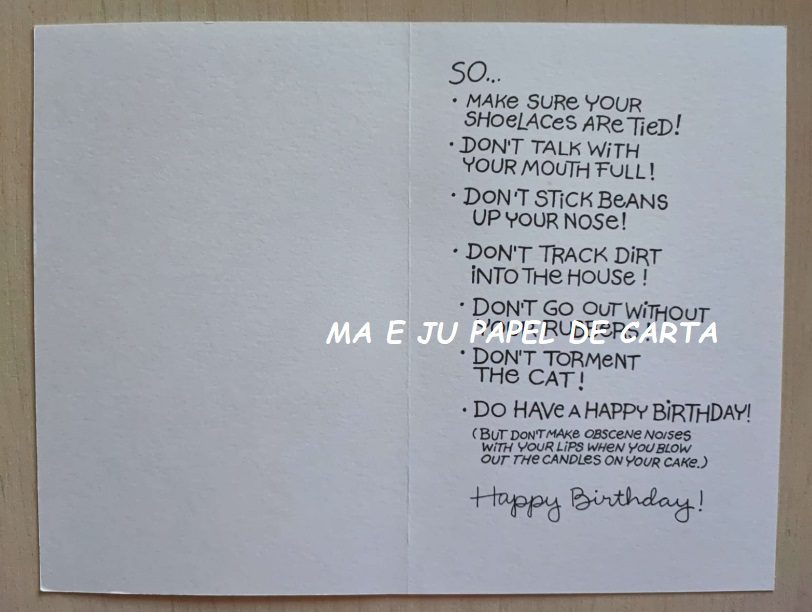 SO...
• MAKE SURE YOUR
SHOELACES ARE TIED!
• DON'T TALK WITH
YOUR MOUTH FULL!
• DON'T STICK BEANS
UP YOUR NOSE!
• DON'T TRACK DIRT
INTO THE HOUSE!
• DON'T GO OUT WITHOUT
YOUR RUBBERS!
MA E JU PAPEL DE CARTA
• DON'T TORMENT
THE CAT!
• DO HAVE A HAPPY BIRTHDAY!
(BUT DON'T MAKE OBSCENE NOISES
WITH YOUR LIPS WHEN YOU BLOW
OUT THE CANDLES ON YOUR CAKE.)
Happy Birthday!